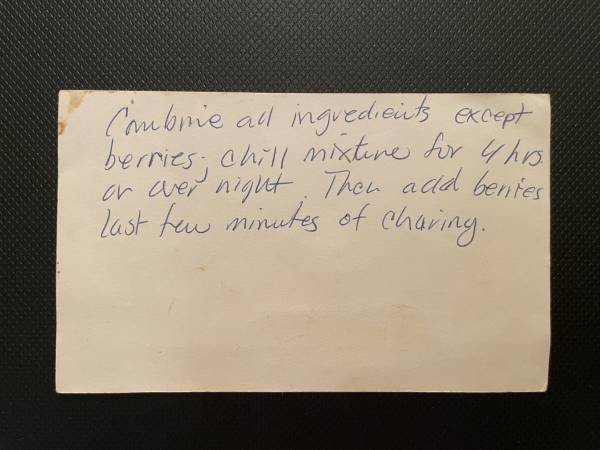 Combine all ingredients except
berries; chill mixture for 4 hrs.
or over night. Then add berries
last few minutes of charing.